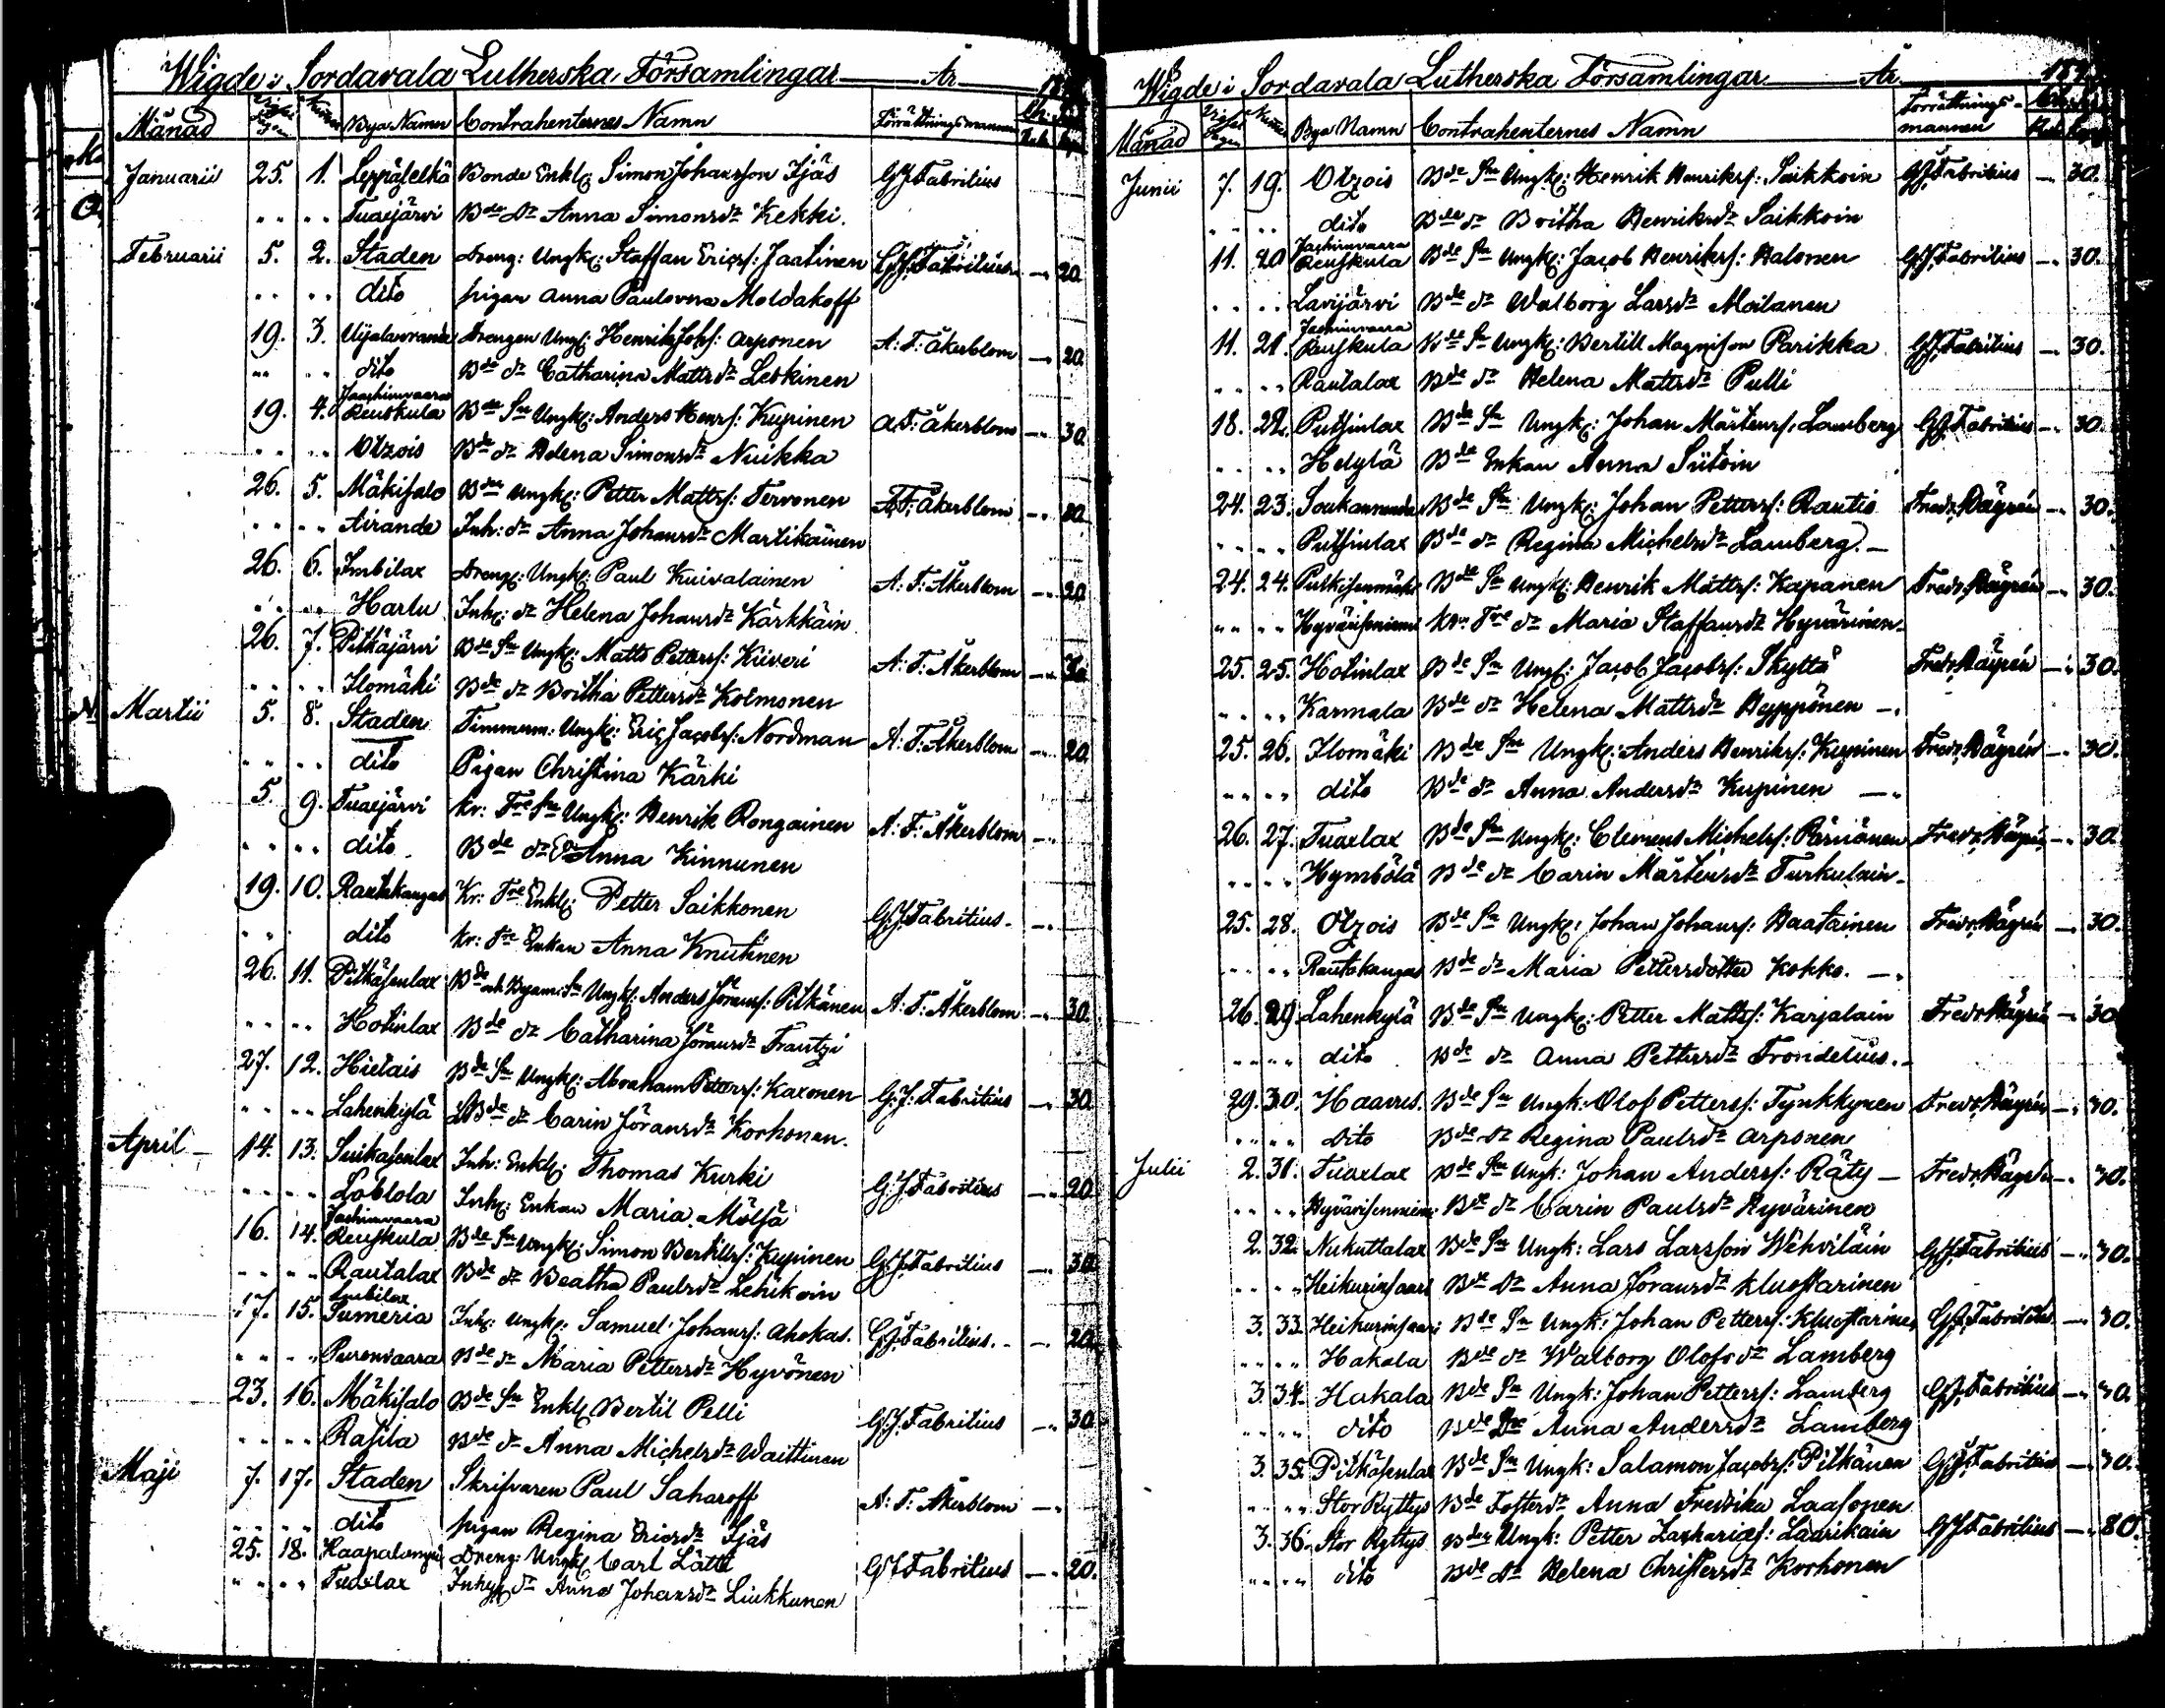 Wigde i Sordavala Lutherska Församlingar År
Månad Bya Namn Contrahenternes Namn Förrättningsmannen
Januarii 25. 1. Leppäselkä Bonde Enkl: Simon Johansson Ijäs G J Fabritius
" " " " Tuaxjärvi Bde dr Anna Simonsdr Kekki.
Februarii 5. 2. Staden Dreng: Ungk: Staffan Ericss: Jaatinen G J Fabritius — 20.
" " " " dito pigan Anna Paulovna Moldakoff
19. 3. Drengen Ungk: Henrik Johss: Arponen A: F: Åkerblom — 20
" " " " dito Bde dr Catharina Mattsdr Leskinen
19. 4. Jaachimvaara Reuskula Bde Sn Ungk: Anders Henrs: Kupinen A: F: Åkerblom — 30.
" " " " Otzois Bde dr Helena Simonsdr Nuikka
26. 5. Mäkisalo Bden Ungk: Petter Mattss: Tervonen A: F: Åkerblom — 20
" " " " Airanda Inh: dr Anna Johansdr Martikainen
26. 6. Imbilax Dreng: Ungk: Paul Kuivalainen A: F: Åkerblom — 20
" " " " Harlu Inh: dr Helena Johansdr Kärkkäin
26. 7. Pitkäjärvi Bde Sn Ungk: Matts Petterss: Kiiveri A: F: Åkerblom — 30
" " " " Ilomäki Bde dr Britha Pettersdr Kolmonen
Martii 5. 8. Staden Timmerm: Ungk: Eric Jacobs: Nordman A: F: Åkerblom — 20
" " " " dito Pigan Christina Kärki
5. 9. Tuaxjärvi Kr: Tre Sn Ungk: Henrik Rongainen A: F: Åkerblom —
" " " " dito Bde dr Anna Kinnunen
19. 10. Rautakangas Kr: Tre Enkl: Petter Saikkonen G. J. Fabritius —
" " dito Kr: Tre Enkan Anna Knuutinen
26. 11. Pitkäsenlax Bde och Byam: Sn Ungk: Anders Jöranss: Pitkänen A: F: Åkerblom — 30.
" " " " Hotinlax Bde dr Catharina Jöransdr Frantzi
27. 12. Hietais Bde Sn Ungk: Abraham Petterss: Kaxonen G: J: Fabritius — 30.
" " " " Lahenkylä Bde dr Carin Jöransdr Korhonen.
April 14. 13. Suikasenlax Inh: Enkl: Thomas Kurki G: J: Fabritius — 20
" " " " Läblola Inh: Enkan Maria Mölsä
16. 14. Jachimvaara Reuskula Bde Sn Ungk: Simon Bertills: Kupinen G: J: Fabritius — 30
" " " " Rautalax Bde dr Beatha Paulsdr Lehikoin
17. 15. Imbilax Sumeria Inh: Ungk: Samuel Johanss: Ahokas. G: J: Fabritius. — 20
" " " " Puronvaara Bde dr Maria Pettersdr Hyvönen
23. 16. Mäkisalo Bde Sn Enkl: Bertil Pelli G: J: Fabritius — 30
" " " " Rasila Bde dr Anna Michelsdr Waittinen
Maji 7. 17. Staden Skrifvaren Paul Saharoff A: F: Åkerblom —
" " " " dito pigan Regina Ericsdr Ijäs
25. 18. Haapalampi Dreng: Ungk: Carl Lätti G J Fabritius — 20.
" " " " Tuoxlax Inh: dr Anna Johansdr Liukkunen
Wigde i Sordavala Lutherska Församlingar År
Månad Bya Namn Contrahenternes Namn Förrättningsmannen
Junii 7. 19. Otzois Bde Sn Ungk: Henrik Henrikss: Saikkoin G J Fabritius — 30.
" " " " dito Bde dr Britha Henriksdr Saikkoin
11. 20 Jachimvaara Reuskula Bde Sn Ungk: Jacob Henrikss: Halonen G J Fabritius — 30.
" " " " Lavijärvi Bde dr Walborg Larsdr Moilanen
11. 21. Jachimvaara Reuskula Bde Sn Ungk: Bertill Magnison Parikka G J Fabritius — 30.
" " " " Rautalax Bde dr Helena Mattsdr Pulli
18. 22. Putsinlax Bde Sn Ungk: Johan Mårtenss: Lamberg G J Fabritius — 30.
" " " " Helylä Bde Enkan Anna Siitoin
24. 23. Soukanranda Bde Sn Ungk: Johan Petterss: Rautio Fredr: Hägrén — 30.
" " " " Putsinlax Bde dr Regina Michelsdr Lamberg. —
24. 24. Puikisenmäki Bde Sn Ungk: Henrik Mattss: Kapanen Fredr: Hägrén — 30.
" " " " Hyvärisniemi Krn Tre dr Maria Staffansdr Hyvärinen —
25. 25. Hotinlax Bde Sn Ungk: Jacob Jacobss: Skyttä Fredr: Hägrén — 30.
" " " " Karmala Bde dr Helena Mattsdr Heppönen —
25. 26. Ilomäki Bde Sn Ungk: Anders Henrikss: Kupinen Fredr: Hägrén — 30.
" " " " dito Bde dr Anna Andersdr Kupinen —
26. 27. Tuoxlax Bde Sn Ungk: Clemens Michelss: Pärnänen Fredr: Hägrén — 30.
" " " " Hymbölä Bde dr Carin Mårtensdr Turkulain —
25. 28. Otzois Bde Sn Ungk: Johan Johanss: Haatainen Fredr: Hägrén — 30.
" " " " Rautakangas Bde dr Maria Pettersdotter Kokko. —
26. 29. Lahenkylä Bde Sn Ungk: Petter Mattss: Karjalain Fredr Hägrén — 30
" " " " dito Bde dr Anna Pettersdr Trondelius. —
29. 30. Haavus. Bde Sn Ungk: Olof Petterss: Tynkkynen Fredr: Hägrén — 30.
" " " " dito Bde dr Regina Paulsdr Arponen
Julii 2. 31. Tuoxlax Bde Sn Ungk: Johan Anderss: Räty — Fredr: Hägrén — 30.
" " " " Hyvärisenniemi Bde dr Carin Paulsdr Hyvärinen
2. 32. Nukuttalax Bde Sn Ungk: Lars Larsson Wehviläin G J Fabritius — 30.
" " " " Heikurinsaari Bde dr Anna Jöransdr Kluostarinen
3. 33. Heikurinsaari Bde Sn Ungk: Johan Petterss: Kluostarinen G J Fabritius — 30.
" " " " Hakala Bde dr Walborg Olofsdr Lamberg
3. 34. Hakala Bde Sn Ungk: Johan Petterss: Lamberg G J Fabritius — 30.
" " " " dito Bde dr Anna Andersdr Lamberg
3. 35. Pitkäsenlax Bde Sn Ungk: Salamon Jacobss: Pitkänen G J Fabritius — 30.
" " " " Stor Ryttys Bde Fosterdr Anna Fredrika Laasonen
3. 36. Stor Ryttys Bden Ungk: Petter Zachariæs: Laurikain G J Fabritius — 80.
" " " " dito Bde dr Helena Christersdr Korhonen